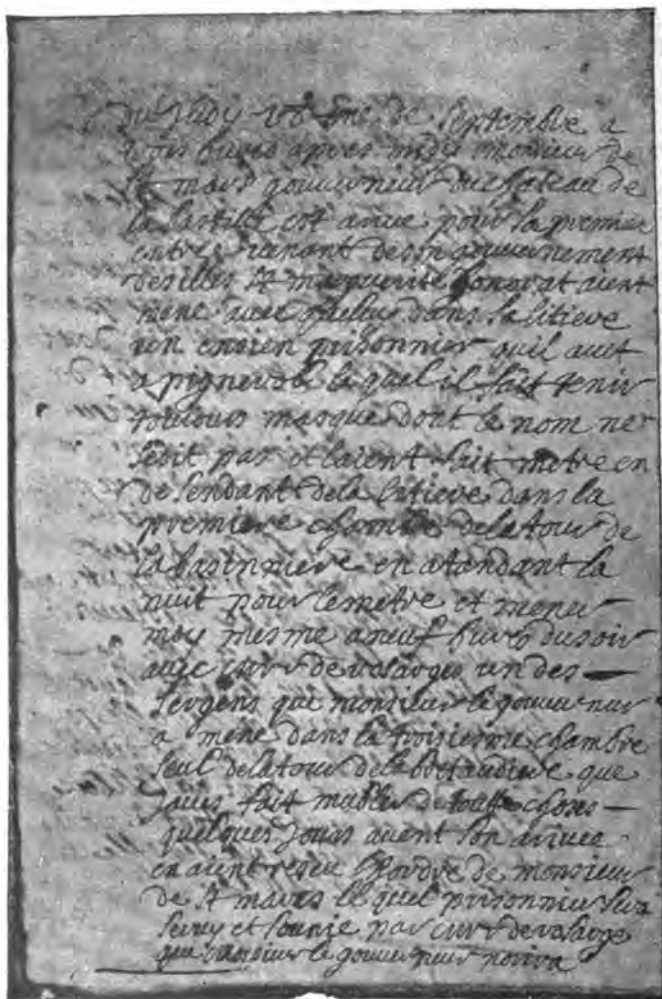 du judy 18me de Septembre a
trois heures apres midy monsieur de
St mars gouverneur du chateau de
la bastille est arive pour sa premier
entree venant de son gouvernement
des illes Ste marguerite honorat aient
mene avec queluy dans sa litiere
un ensien prisonnier quil avet
a pignerol le quel il fait tenir
touiours masque dont le nom ne
sedit pas et laient fait metre en
desendant dela litiere dans la
premiere chambre delatour de
la basinniere en atandant la
nuit pour lemetre et mener
moy mesme aneuf heures dusoir
avec de rosarges un des
sergens que monsieur le gouverneur
a mene dans la troisiesme chambre
seul delatour dela bretaudiere que
javes fait meubler de choses
quelques jours avent son arivee
en aient reseu lhordre de monsieur
de St mars le quel prisonnier sera
servy et sounie par de rosarge
que monsieur le gouverneur norira